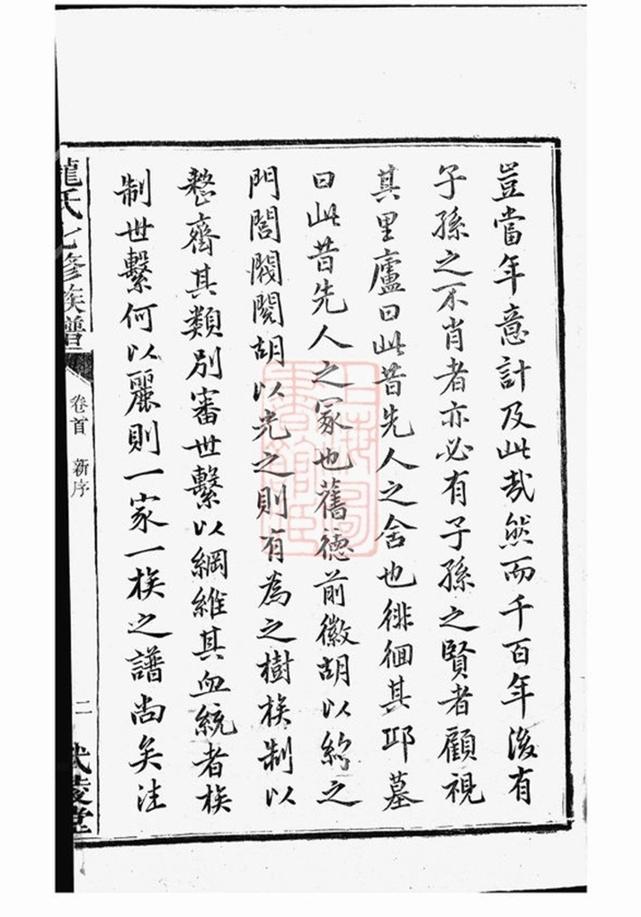 豈當年意計及此哉然而千百年後有
子孫之不肖者亦必有子孫之賢者顧視
其里廬曰此昔先人之舍也徘徊其邱墓
曰此昔先人之冢也舊德前徽胡以紹之
門閭閥閱胡以光之則有為之樹族制以
整齊其類別審世繫以綱維其血統者族
制世繫何以麗則一家一族之譜尚矣法
龍氏七修族譜
卷首 新序
二
武陵堂